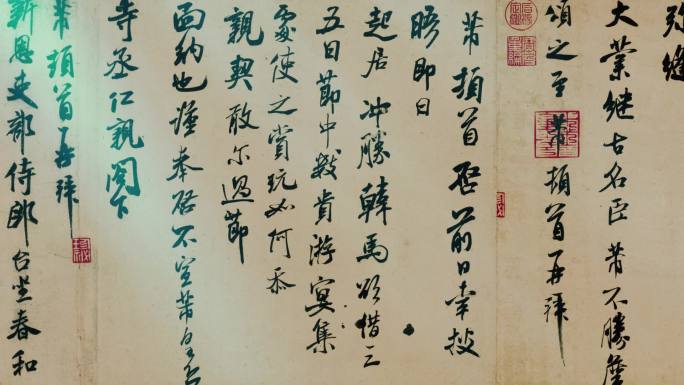 弥縫
大業継古名臣芾不勝慶
頌之至芾頓首再拜
芾頓首啓前日幸披
晤即日
起居冲勝韓馬欲借三
五日節中数貴游宴集
處使之賞玩如何忝
親契敢尔過節
面納也謹奉啓不宣芾皇
寺丞仁親閣下
芾頓首再拜
新恩吏部侍郎台坐春和